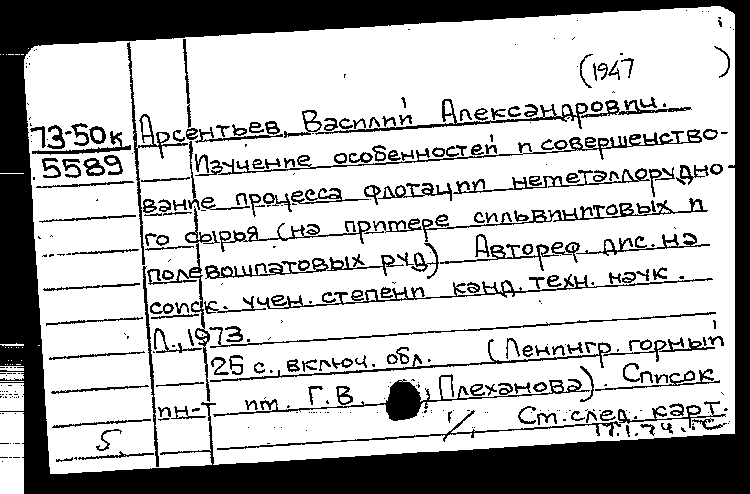 (1947 )
73-50к Арсентьев, Василий Александрович.
5589 Изучение особенностей и совершенство-
вание процесса флотации неметаллорудно-
го сырья (на примере сильвинитовых и
полевошпатовых руд). Автореф. дис. на
соиск. учен. степени канд. техн. наук.
Л., 1973.
25 с., включ. обл. (Ленингр. горный
ин-т им. Г.В. Плеханова). Список
5. Ст. след. карт.
17.1.74.